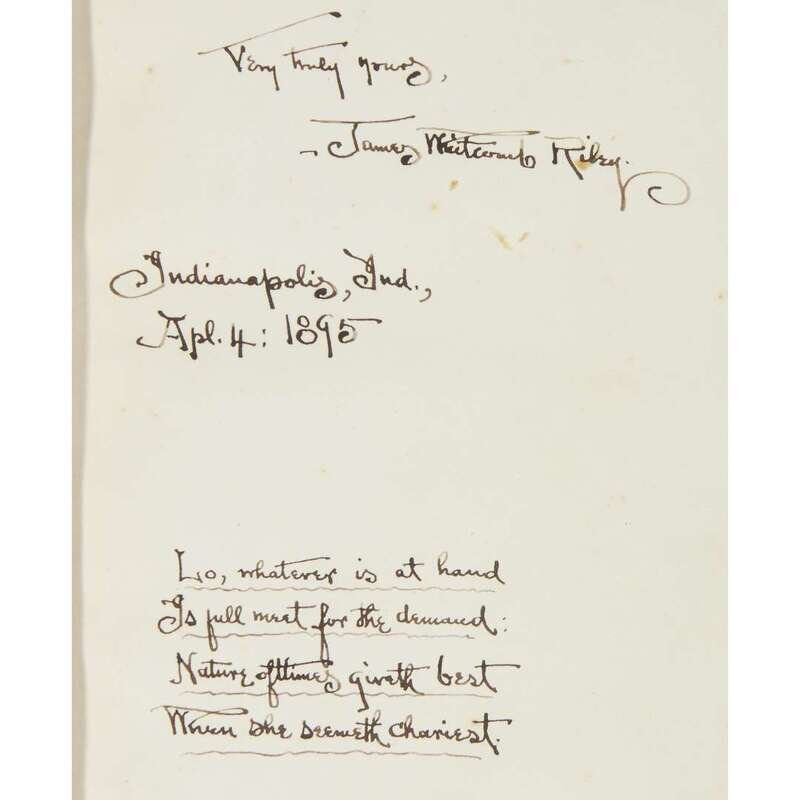 Very truly yours,
- James Whitcomb Riley.
Indianapolis, Ind.,
Apl. 4: 1895
Lo, whatever is at hand
Is full meet for the demand:
Nature ofttimes giveth best
When she seemeth chariest.